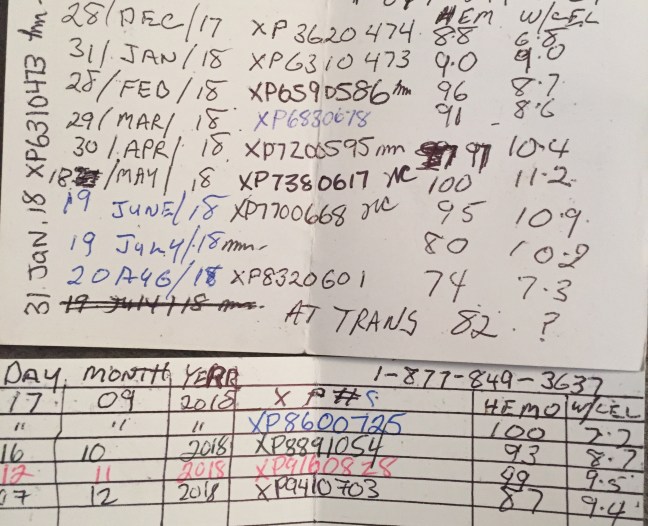 HEM W/CEL
28/DEC/17 XP3620474 8.8 6.8
31/JAN/18 XP6310473 9.0 9.0
28/FEB/18 XP6590586 tm 96 8.7
29/MAR/18 XP6830678 91 8.6
30/APR/18 XP7200595 mm 97 10.4
18 /MAY/18 XP7380617 NC 100 11.2
19 JUNE/18 XP7700668 NC 95 10.9
19 JULY/18 mm 80 10.2
20 AUG/18 XP8320601 74 7.3
AT TRANS 82 ?
31 JAN. 18 XP6310473 tm
DAY MONTH YEAR 1-877-849-3637
17 09 2018 XP#s HEMO W/CEL
" " " XP8600725 100 7.7
16 10 2018 XP8891054 93 8.7
12 11 2018 XP9160828 99 9.5
07 12 2018 XP9410703 87 9.4